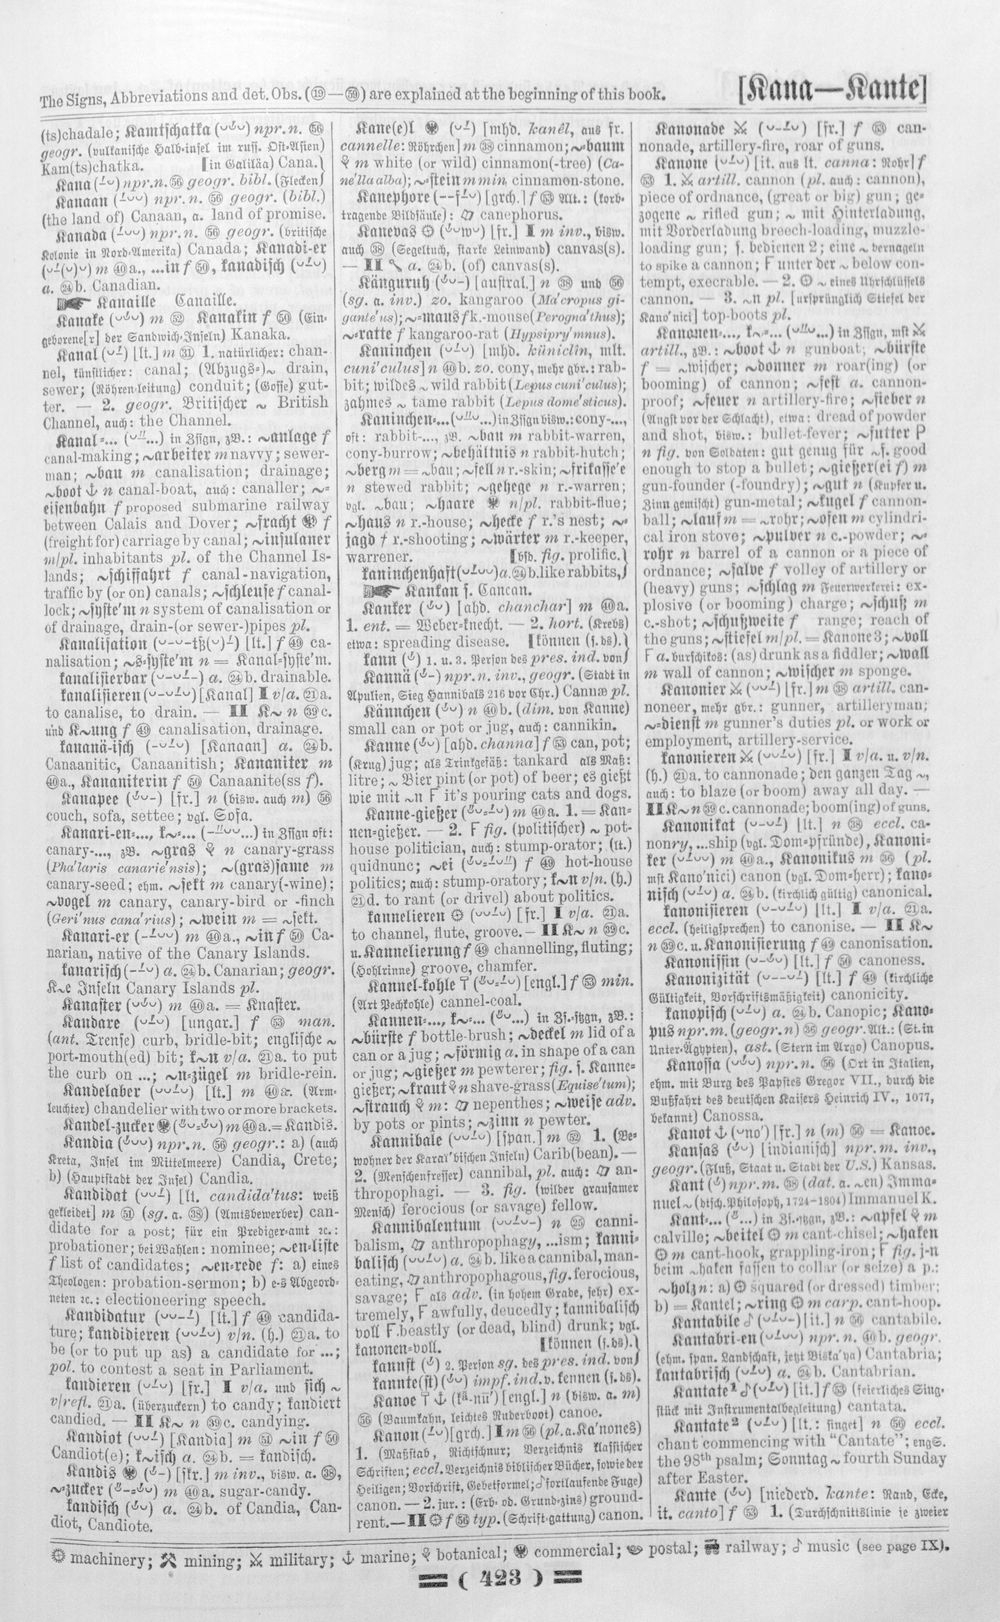 The Signs, Abbreviations and det. Obs. (⑲—㊾) are explained at the beginning of this book.
[Kana—Kante]
(ts)chadale; Kamtschatka npr. n.
geogr. (vulkanische Halb-insel im russ. Ost-Asien)
Kam(ts)chatka. [in Galiläa) Cana.
Kana npr. n. geogr. bibl. (Flecken
Kanaan npr. n. geogr. (bibl.)
(the land of) Canaan, a. land of promise.
Kanada npr. n. geogr. (britische
Kolonie in Nord-Amerika) Canada; Kanadi-er
m a., ...in f, kanadisch
a. b. Canadian.
Kanaille Canaille.
Kanake m Kanakin f (Ein-
geborene[r] der Sandwich-Inseln) Kanaka.
Kanal [lt.] m 1. natürlicher: chan-
nel, künstlicher: canal; (Abzugs-)~ drain,
sewer; (Röhren-leitung) conduit; (Gosse) gut-
ter. — 2. geogr. Britischer ~ British
Channel, auch: the Channel.
Kanal-... in Zssgn, zB.: ~anlage f
canal-making; ~arbeiter m navvy; sewer-
man; ~bau m canalisation; drainage;
~boot n canal-boat, auch: canaller; ~-
eisenbahn f proposed submarine railway
between Calais and Dover; ~fracht f
(freight for) carriage by canal; ~insulaner
m/pl. inhabitants pl. of the Channel Is-
lands; ~schiffahrt f canal-navigation,
traffic by (or on) canals; ~schleuse f canal-
lock; ~syste'm n system of canalisation or
of drainage, drain-(or sewer-)pipes pl.
Kanalisation [lt.] f ca-
nalisation; ~s-syste'm n = Kanal-syste'm.
kanalisierbar a. b. drainable.
kanalisieren [Kanal] I v/a. a.
to canalise, to drain. — II K~ n c.
und K~ung f canalisation, drainage.
kananä-isch [Kanaan] a. b.
Canaanitic, Canaanitish; Kananiter m
a., Kananiterin f Canaanite(ss f).
Kanapee [fr.] n (bisw. auch m)
couch, sofa, settee; vgl. Sofa.
Kanari-en-..., k~-... in Zssgn oft:
canary-..., zB. ~gras n canary-grass
(Pha'laris canarie'nsis); ~(gras)same m
canary-seed; ehm. ~sekt m canary(-wine);
~vogel m canary, canary-bird or -finch
(Geri'nus cana'rius); ~wein m = ~sekt.
Kanari-er m a., ~in f Ca-
narian, native of the Canary Islands.
kanarisch a. b. Canarian; geogr.
K~e Inseln Canary Islands pl.
Kanaster m a. = Knaster.
Kandare [ungar.] f man.
(ant. Trense) curb, bridle-bit; englische ~
port-mouth(ed) bit; k~n v/a. a. to put
the curb on ...; ~n-zügel m bridle-rein.
Kandelaber [lt.] m a. (Arm-
leuchter) chandelier with two or more brackets.
Kandel-zucker m a. = Kandis.
Kandia npr. n. geogr.: a) (auch
Kreta, Insel im Mittelmeere) Candia, Crete;
b) (Hauptstadt der Insel) Candia.
Kandidat [lt. candida'tus: weiß
gekleidet] m (sg. a.) (Amtsbewerber) can-
didate for a post; für ein Prediger-amt 2c.:
probationer; bei Wahlen: nominee; ~en-liste
f list of candidates; ~en-rede f: a) eines
Theologen: probation-sermon; b) e-s Abgeord-
neten 2c.: electioneering speech.
Kandidatur [lt.] f candida-
ture; kandidieren v/n. (h.) a. to
be (or to put up as) a candidate for ...;
pol. to contest a seat in Parliament.
kandieren [fr.] I v/a. und sich ~
v/refl. a. (überzuckern) to candy; kandiert
candied. — II K~ n c. candying.
Kandiot [Kandia] m ~in f
Candiot(e); k~isch a. b. = kandisch.
Kandis [skr.] m inv., bisw. a.
~-zucker m a. sugar-candy.
kandisch a. b. of Candia, Can-
diot, Candiote.
Kane(e)l [mhd. kanêl, aus fr.
cannelle: Röhrchen] m cinnamon; ~baum
m white (or wild) cinnamon(-tree) (Ca-
ne'lla alba); ~stein m min. cinnamon-stone.
Kanephore [grch.] f Alt.: (korb-
tragende Bildsäule): canephorus.
Kanevas [fr.] I m inv., bisw.
auch (Segeltuch, starke Leinwand) canvas(s).
— II a. b. (of) canvas(s).
Känguruh [austral.] n und
(sg. a. inv.) zo. kangaroo (Ma'cropus gi-
gante'us); ~-maus f k.-mouse (Perogna'thus);
~-ratte f kangaroo-rat (Hypsipry'mnus).
Kaninchen [mhd. küniclîn, mlt.
cuni'culus] n b. zo. cony, mehr gbr.: rab-
bit; wildes ~ wild rabbit (Lepus cuni'culus);
zahmes ~ tame rabbit (Lepus dome'sticus).
Kaninchen-... in Zssgn bisw.: cony-...,
oft: rabbit-..., zB. ~bau m rabbit-warren,
cony-burrow; ~behältnis n rabbit-hutch;
~berg m = ~bau; ~fell n r.-skin; ~frikasse'e
n stewed rabbit; ~gehege n r.-warren;
vgl. ~bau; ~haare n/pl. rabbit-flue;
~haus n r.-house; ~hecke f r.'s nest; ~-
jagd f r.-shooting; ~wärter m r.-keeper,
warrener. [bsd. fig. prolific.
kaninchenhaft a. b. like rabbits,
Kankan s. Cancan.
Kanker [ahd. chanchar] m a.
1. ent. = Weber-knecht. — 2. hort. (Krebs)
etwa: spreading disease. [können (s. ds).
kann 1. u. 3. Person des pres. ind. von
Kannä npr. n. inv., geogr. (Stadt in
Apulien, Sieg Hannibals 216 vor Chr.) Cannæ pl.
Kännchen n b. (dim. von Kanne)
small can or pot or jug, auch: cannikin.
Kanne [ahd. channa] f can, pot;
(Krug) jug; als Trinkgefäß: tankard als Maß:
litre; ~ Bier pint (or pot) of beer; es gießt
wie mit ~n F it's pouring cats and dogs.
Kanne-gießer m a. 1. = Kan-
nen-gießer. — 2. F fig. (politischer) ~ pot-
house politician, auch: stump-orator; (lt.)
quidnunc; ~ei f hot-house
politics; auch: stump-oratory; k~n v/n. (h.)
d. to rant (or drivel) about politics.
kannelieren [fr.] I v/a. a.
to channel, flute, groove. — II K~ n c.
u. Kannelierung f channelling, fluting;
(Hohlrinne) groove, chamfer.
Kannel-kohle [engl.] f min.
(Art Pechkohle) cannel-coal.
Kannen-..., k~-... in Zs.-sgn, zB.:
~bürste f bottle-brush; ~deckel m lid of a
can or a jug; ~förmig a. in shape of a can
or jug; ~gießer m pewterer; fig. s. Kanne-
gießer; ~kraut n shave-grass (Equise'tum);
~strauch m: nepenthes; ~weise adv.
by pots or pints; ~zinn n pewter.
Kannibale [span.] m 1. (Be-
wohner der Karai'bischen Inseln) Carib(bean). —
2. (Menschenfresser) cannibal, pl. auch: an-
thropophagi. — 3. fig. (wilder grausamer
Mensch) ferocious (or savage) fellow.
Kannibalentum n canni-
balism, anthropophagy, ...ism; kanni-
balisch a. b. like a cannibal, man-
eating, anthropophagous, fig. ferocious,
savage; F als adv. (in hohem Grade, sehr) ex-
tremely, F awfully, deucedly; kannibalisch
voll F beastly (or dead, blind) drunk; vgl.
kanonen-voll. [können (s. ds).
kannst 2. Person sg. des pres. ind. von
kannte(st) impf. ind. v. kennen (s. ds).
Kanoe [engl.] n (bisw. a. m)
(Baumkahn, leichtes Ruderboot) canoe.
Kanon [grch.] I m (pl. a. Ka'nones)
1. (Maßstab, Richtschnur; Verzeichnis klassischer
Schriften; eccl. Verzeichnis biblischer Bücher, sowie der
Heiligen; Vorschrift, Gebetformel; ♪ fortlaufende Fuge)
canon. — 2. jur.: (Erb- od. Grund-zins) ground-
rent. — II f typ. (Schrift-gattung) canon.
Kanonade [fr.] f can-
nonade, artillery-fire, roar of guns.
Kanone [it. aus lt. canna: Rohr] f
1. artill. cannon (pl. auch: cannon),
piece of ordnance, (great or big) gun; ge-
zogene ~ rifled gun; ~ mit Hinterladung,
mit Vorderladung breech-loading, muzzle-
loading gun; s. bedienen 2; eine ~ vernageln
to spike a cannon; F unter der ~ below con-
tempt, execrable. — 2. ~ eines Uhrschlüssels
cannon. — 3. ~n pl. [ursprünglich Stiefel der
Kano'nier] top-boots pl.
Kanonen-..., k~-... in Zssgn, mst
artill., zB.: ~boot n gunboat; ~bürste
f = ~wischer; ~donner m roar(ing) (or
booming) of cannon; ~fest a. cannon-
proof; ~feuer n artillery-fire; ~fieber n
(Angst vor der Schlacht), etwa: dread of powder
and shot, bisw.: bullet-fever; ~futter P
n fig. von Soldaten: gut genug für ~f. good
enough to stop a bullet; ~gießer(ei f) m
gun-founder (-foundry); ~gut n (Kupfer u.
Zinn gemischt) gun-metal; ~kugel f cannon-
ball; ~lauf m = ~rohr; ~ofen m cylindri-
cal iron stove; ~pulver n c.-powder; ~-
rohr n barrel of a cannon or a piece of
ordnance; ~salve f volley of artillery or
(heavy) guns; ~schlag m Feuerwerkerei: ex-
plosive (or booming) charge; ~schuß m
c.-shot; ~schußweite f range; reach of
the guns; ~stiefel m/pl. = Kanone 3; ~voll
F a. burschikos: (as) drunk as a fiddler; ~wall
m wall of cannon; ~wischer m sponge.
Kanonier [fr.] m artill. can-
noneer, mehr gbr.: gunner, artilleryman;
~-dienst m gunner's duties pl. or work or
employment, artillery-service.
kanonieren [fr.] I v/a. u. v/n.
(h.) a. to cannonade; den ganzen Tag ~,
auch: to blaze (or boom) away all day. —
II K~ n c. cannonade; boom(ing) of guns.
Kanonikat [lt.] n eccl. ca-
nonry, ...ship (vgl. Dom-pfründe), Kanoni-
ker m a., Kanonikus m (pl.
mst Kano'nici) canon (vgl. Dom-herr); kano-
nisch a. b. (kirchlich gültig) canonical.
kanonisieren [lt.] I v/a. a.
eccl. (heiligsprechen) to canonise. — II K~
n c. u. Kanonisierung f canonisation.
Kanonissin [lt.] f canoness.
Kanonizität [lt.] f (kirchliche
Gültigkeit, Vorschriftsmäßigkeit) canonicity.
kanopisch a. b. Canopic; Kano-
pus npr. m. (geogr. n) geogr. Alt.: (St. in
Unter-Ägypten), ast. (Stern im Argo) Canopus.
Kanossa npr. n. (Ort in Italien,
ehm. mit Burg des Papstes Gregor VII., durch die
Bußfahrt des deutschen Kaisers Heinrich IV., 1077,
bekannt) Canossa.
Kanot [fr.] n (m) = Kanoe.
Kansas [indianisch] npr. m. inv.,
geogr. (Fluß, Staat u. Stadt der U.S.) Kansas.
Kant npr. m. (dat. a. ~en) Imma-
nuel ~ (dtsch. Philosoph, 1724-1804) Immanuel K.
Kant-... in Zs.-sgn, zB.: ~apfel m
calville; ~beitel m cant-chisel; ~haken
m cant-hook, grappling-iron; F fig. j-n
beim ~haken fassen to collar (or seize) a p.;
~holz n: a) squared (or dressed) timber;
b) = Kantel; ~ring m carp. cant-hoop.
Kantabile ♪ [it.] n cantabile.
Kantabri-en npr. n. b. geogr.
(ehm. span. Landschaft, jetzt Biska'ya) Cantabria;
kantabrisch a. b. Cantabrian.
Kantate¹ ♪ [it.] f (feierliches Sing-
stück mit Instrumentalbegleitung) cantata.
Kantate² [lt.: singet] n eccl.
chant commencing with "Cantate"; engS.
the 98th psalm; Sonntag ~ fourth Sunday
after Easter.
Kante [niederd. kante: Rand, Ecke,
it. canto] f 1. (Durchschnittslinie je zweier
machinery; mining; military; marine; botanical; commercial; postal; railway; ♪ music (see page IX).
( 423 )